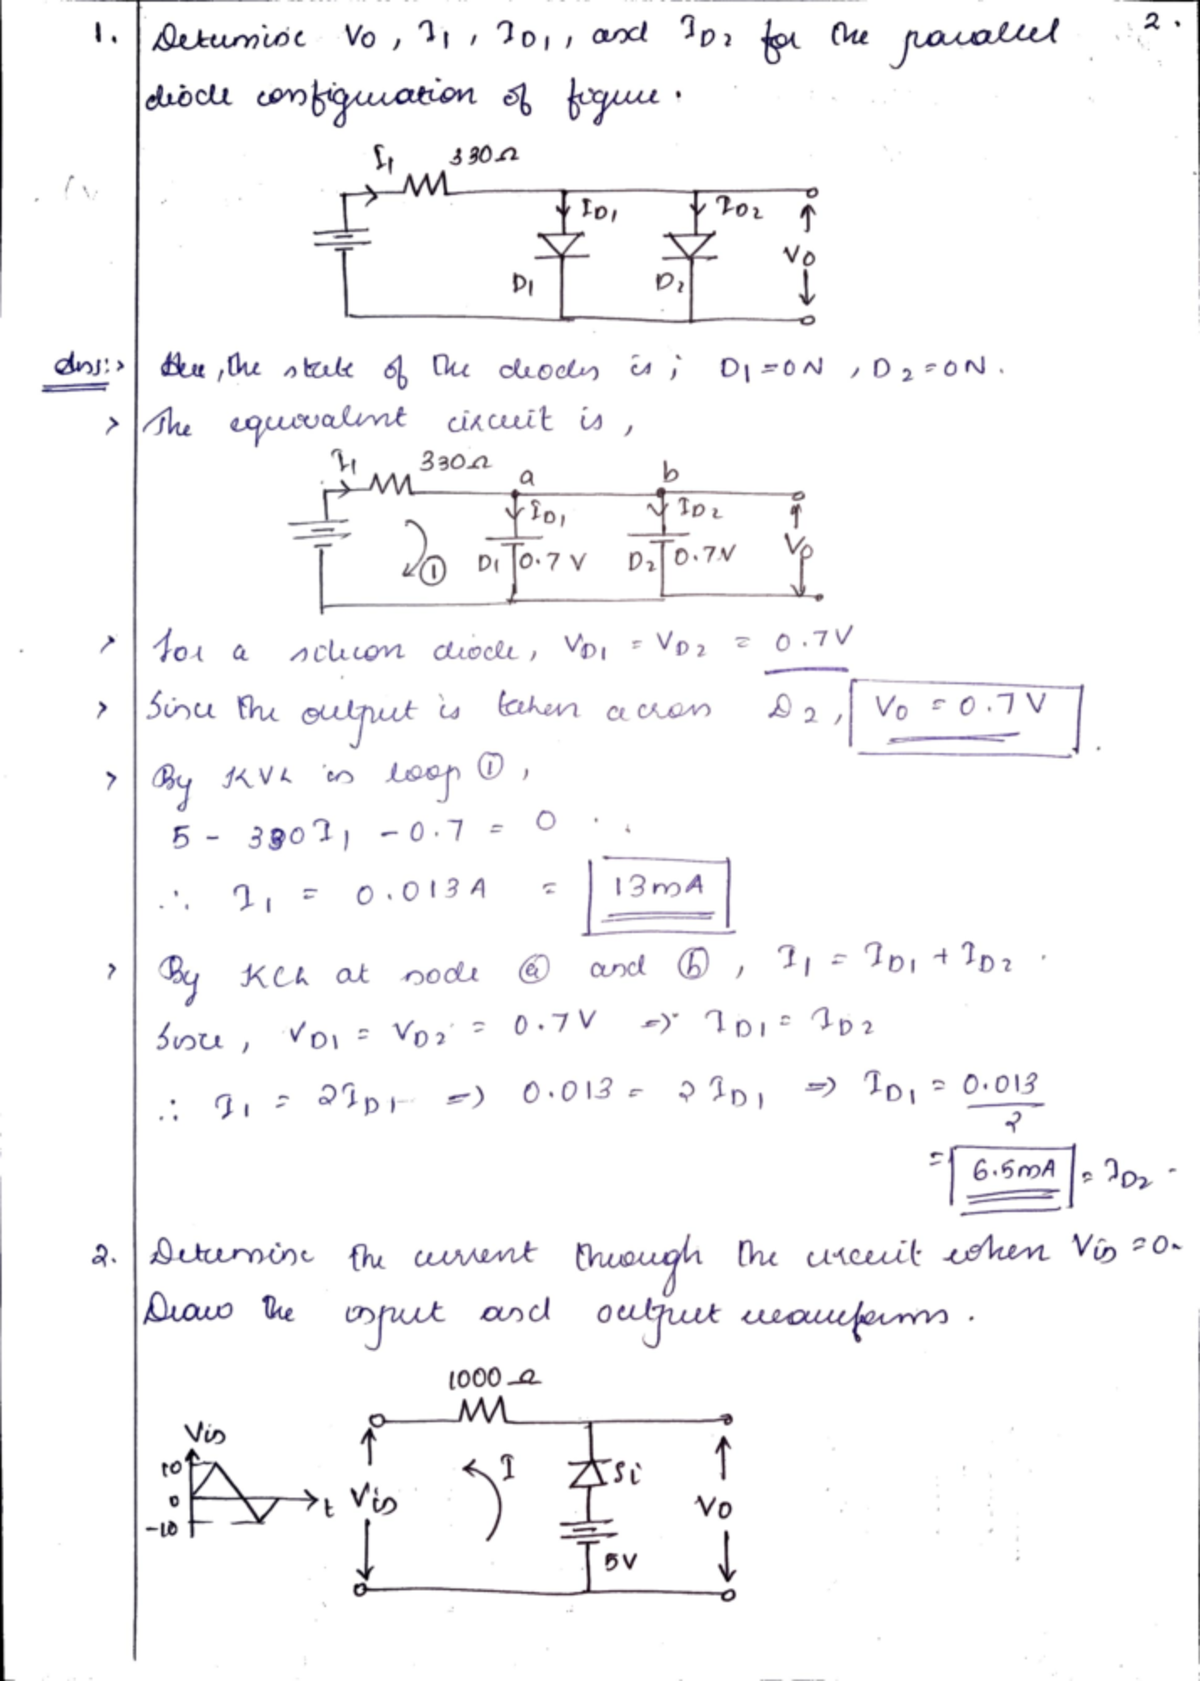 2.
1. Determine Vo, I1, ID1, and ID2 for the parallel
diode configuration of figure.
I1 330Ω
ID1 ID2
Vo
D1 D2
Ans:> Here, the state of the diodes is; D1=ON, D2=ON.
> The equivalent circuit is,
I1 330Ω a b
ID1 ID2
① D1 0.7V D2 0.7V Vo
> For a silicon diode, VD1 = VD2 = 0.7V
> Since the output is taken across D2, Vo = 0.7V
> By KVL in loop ①,
5 - 330I1 - 0.7 = 0
∴ I1 = 0.013A = 13mA
> By KCL at node ⓐ and ⓑ, I1 = ID1 + ID2.
Since, VD1 = VD2 = 0.7V => ID1 = ID2
∴ I1 = 2ID1 => 0.013 = 2ID1 => ID1 = 0.013
2
= 6.5mA = ID2.
2. Determine the current through the circuit when Vin = 0.
Draw the input and output waveforms.
1000Ω
Vin
10
0
-10
t Vin I Si Vo
5V